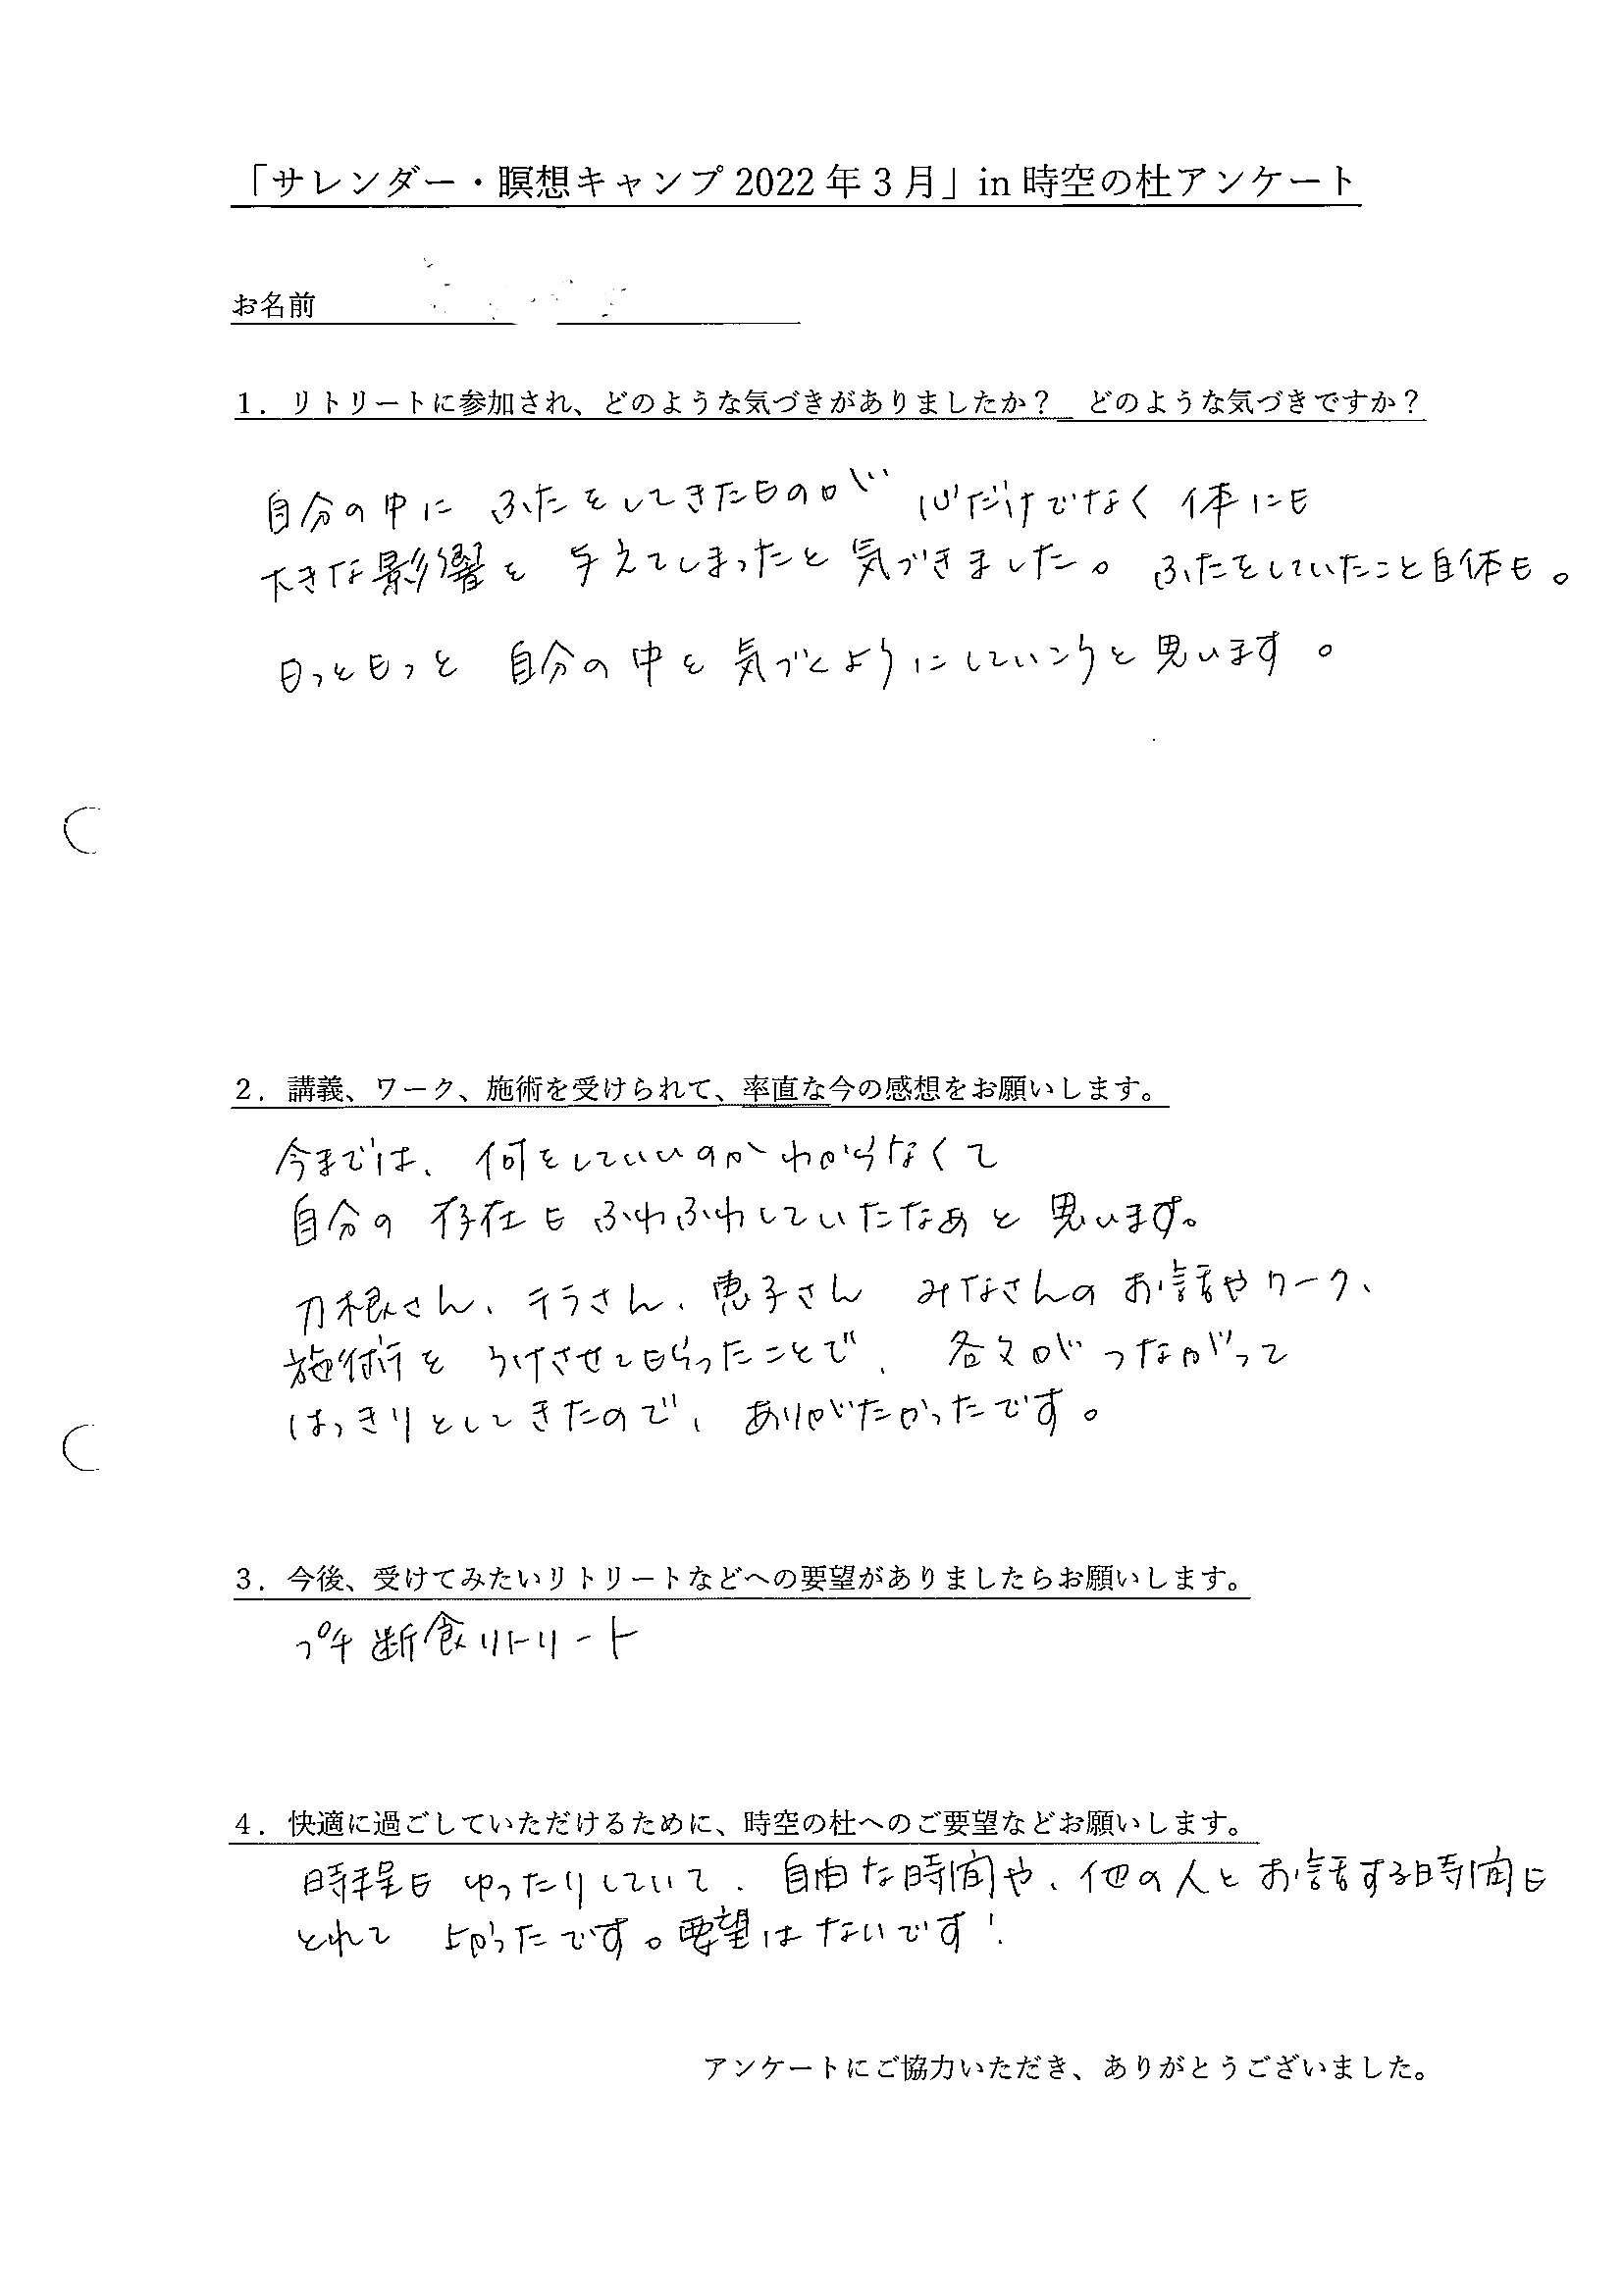 「サレンダー・瞑想キャンプ 2022 年 3 月」in 時空の杜アンケート
お名前
1．リトリートに参加され、どのような気づきがありましたか？　どのような気づきですか？
自分の中に ふたをしてきたものが 心だけでなく 体にも
大きな影響を 与えてしまったと 気づきました。ふたをしていたこと自体も。
もっともっと 自分の中を 気づくようにしていこうと思います。
2．講義、ワーク、施術を受けられて、率直な今の感想をお願いします。
今までは、何をしていいのか わからなくて
自分の 存在も ふわふわしていたなぁと 思います。
刀根さん、テラさん、恵子さん みなさんの お話やワーク、
施術を うけさせてもらったことで、各々が つながって
はっきりとしてきたので、ありがたかったです。
3．今後、受けてみたいリトリートなどへの要望がありましたらお願いします。
プチ断食リトリート
4．快適に過ごしていただけるために、時空の杜へのご要望などお願いします。
時程も ゆったりしていて、自由な時間や、他の人と お話する時間も
とれて よかったです。要望は ないです！
アンケートにご協力いただき、ありがとうございました。